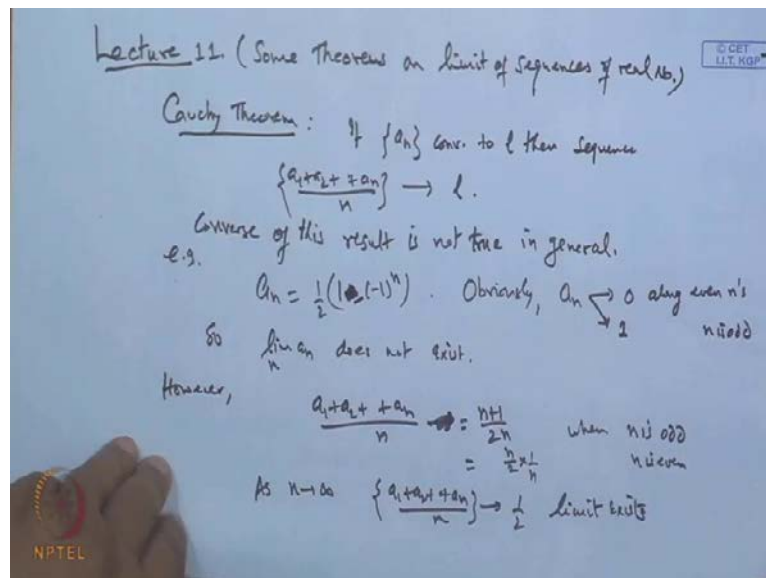 Lecture 11. (Some Theorems on limit of sequences of real No.)
© CET
I.I.T. KGP
Cauchy Theorem : If {an} conv. to l then sequence
{a1+a2+ +an / n} → l.
Converse of this result is not true in general.
e.g.
an = 1/2 (1 (-1)^n) . Obviously, an → 0 along even n's
→ 1 n is odd
So lim an does not exist.
n
However,
a1+a2+ +an / n = n+1 / 2n when n is odd
= n/2 × 1/n n is even
As n→∞ {a1+a2+ +an / n} → 1/2 limit exists
NPTEL